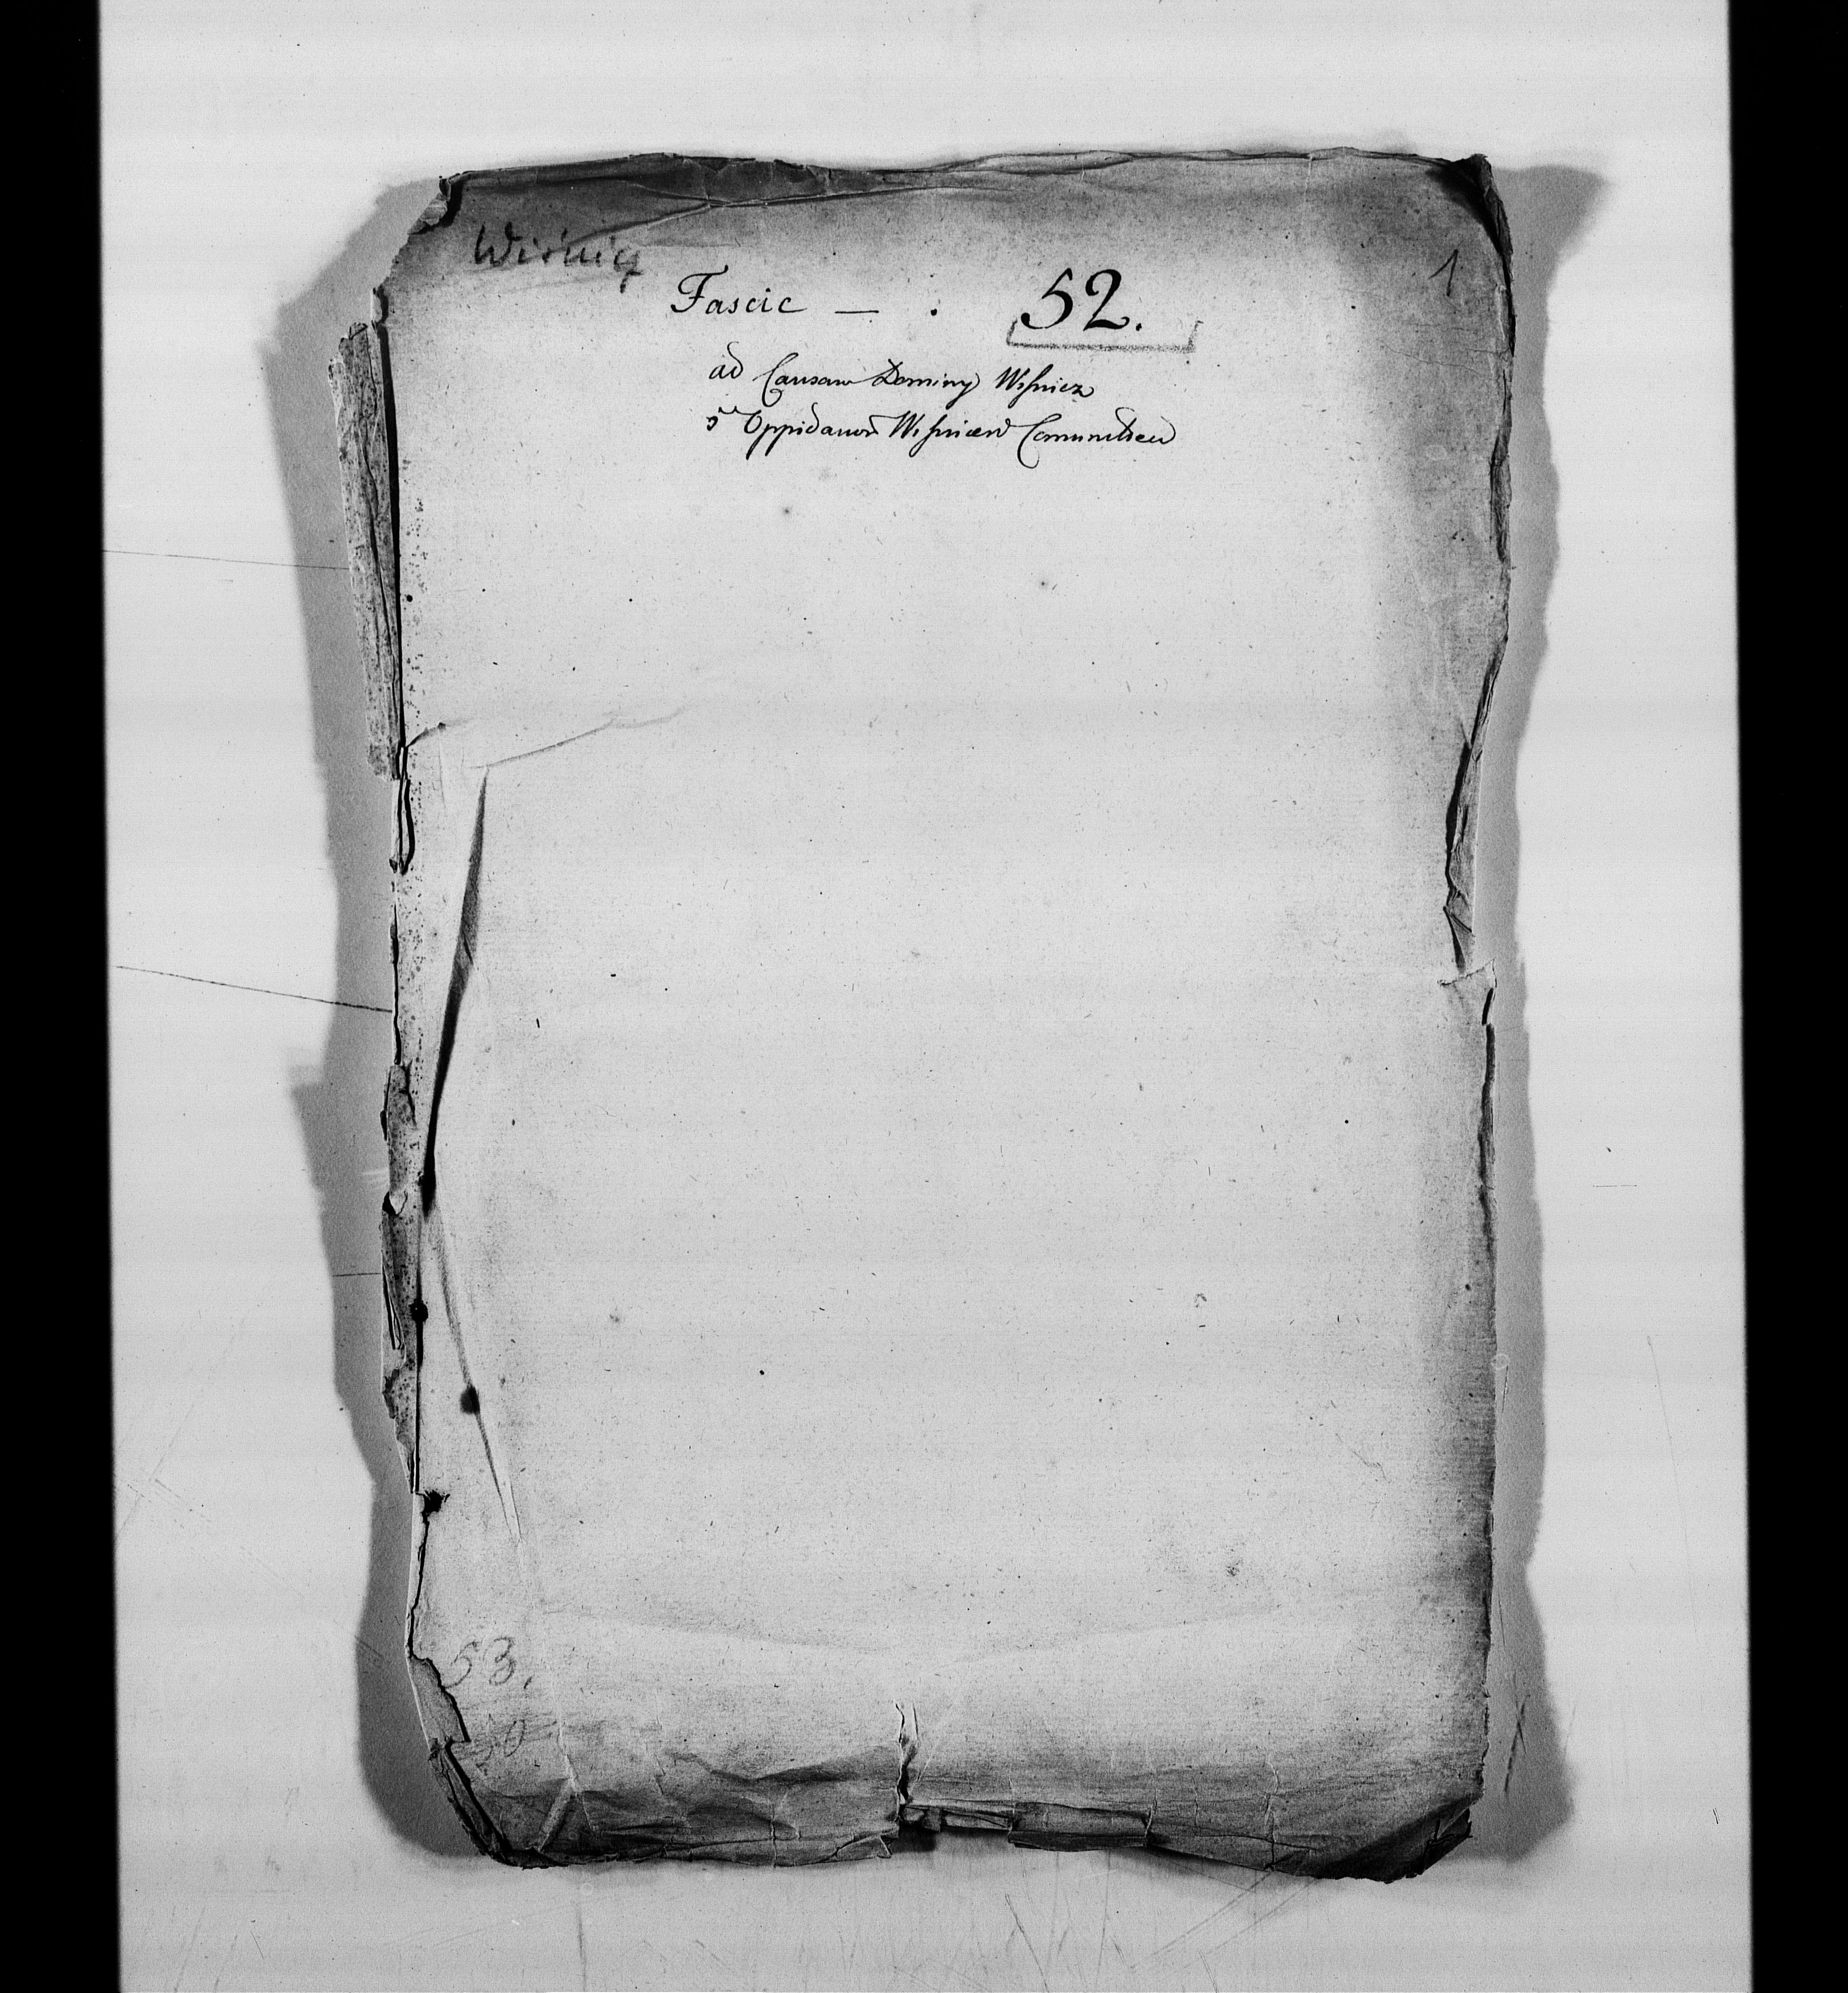 Wiśnicz
1
Fascic — . 52.
ad Causam Dominy Wiſnicz
Oppidanor Wiſnicen Comunitien
53.
50